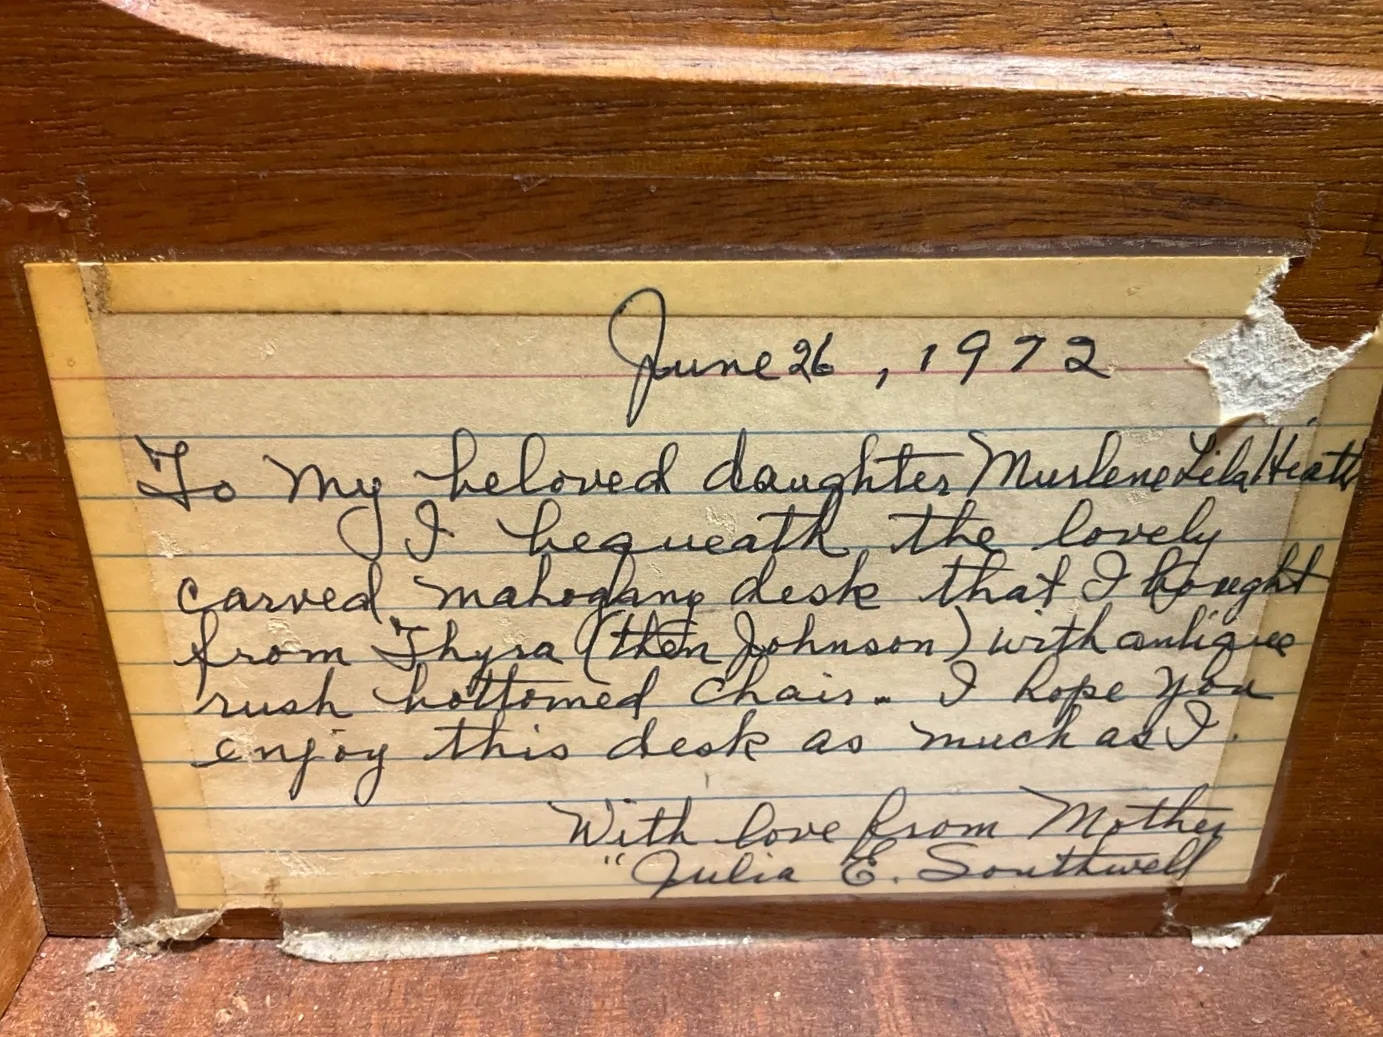 June 26, 1972
To my beloved daughter Murlene Lila Hiatt
I bequeath the lovely
carved mahogany desk that I bought
from Thyra (then Johnson) with antique
rush bottomed chair. I hope you
enjoy this desk as much as I.
With love from Mother
"Julia E. Southwell